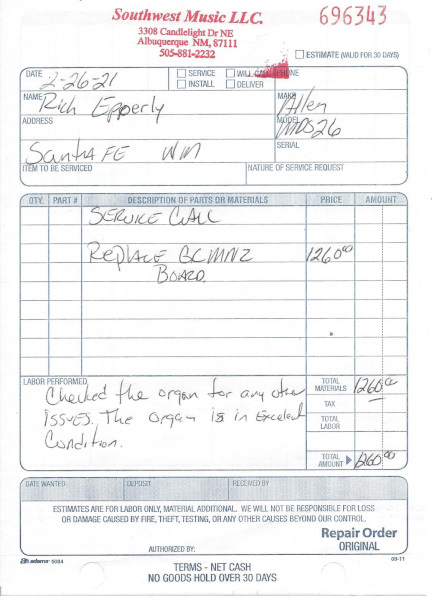 Southwest Music LLC.
696343
3308 Candlelight Dr NE
Albuquerque NM, 87111
505-881-2232
ESTIMATE (VALID FOR 30 DAYS)
DATE 2-26-21
SERVICE WILL CALL PHONE
INSTALL DELIVER
NAME Rich Epperly MAKE Allen
ADDRESS MODEL MDS26
Santa FE NM SERIAL
ITEM TO BE SERVICED NATURE OF SERVICE REQUEST
QTY. PART # DESCRIPTION OF PARTS OR MATERIALS PRICE AMOUNT
SERVICE CALL
Replace GCMN2 1260.00
BOARD
LABOR PERFORMED TOTAL MATERIALS 1260.00
Checked the organ for any other
ISSUES. The organ is in Excelent
Condition.
TAX
TOTAL LABOR
TOTAL AMOUNT 1260.00
DATE WANTED DEPOSIT RECEIVED BY
ESTIMATES ARE FOR LABOR ONLY, MATERIAL ADDITIONAL. WE WILL NOT BE RESPONSIBLE FOR LOSS
OR DAMAGE CAUSED BY FIRE, THEFT, TESTING, OR ANY OTHER CAUSES BEYOND OUR CONTROL.
Repair Order
ORIGINAL
AUTHORIZED BY:
adams 5084
09-11
TERMS - NET CASH
NO GOODS HOLD OVER 30 DAYS